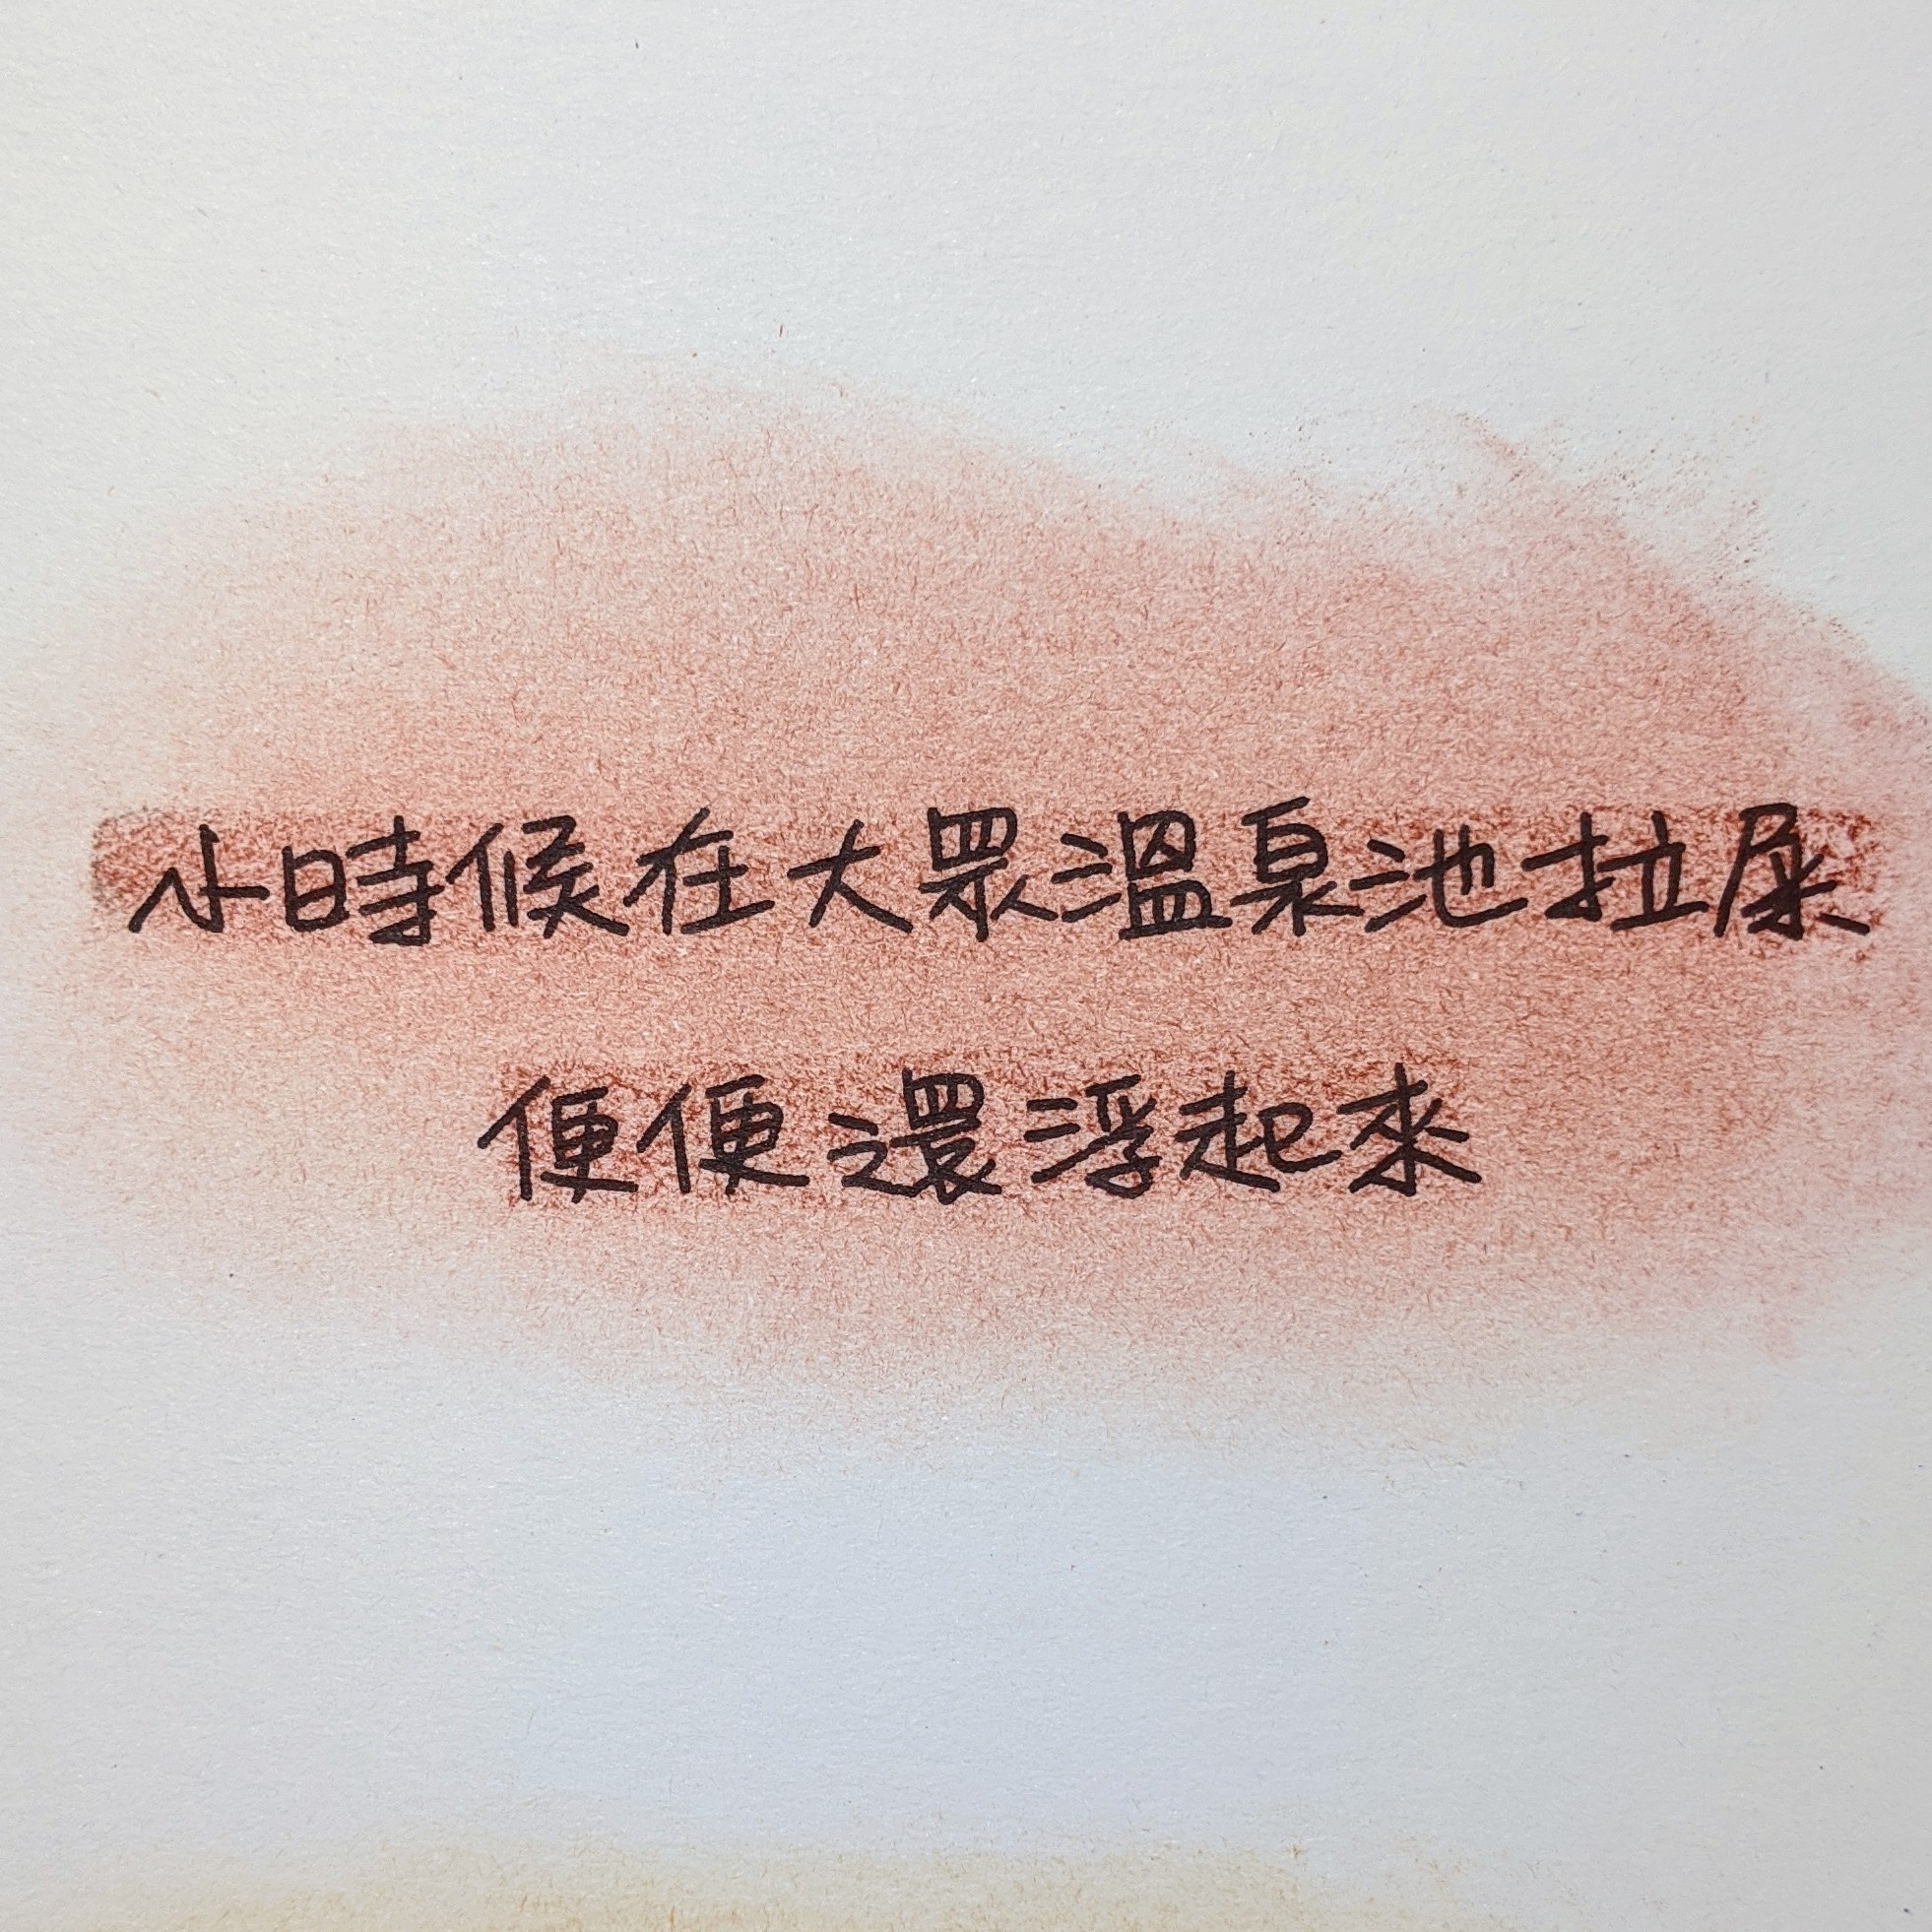 小時候在大眾溫泉池拉屎
便便還浮起來